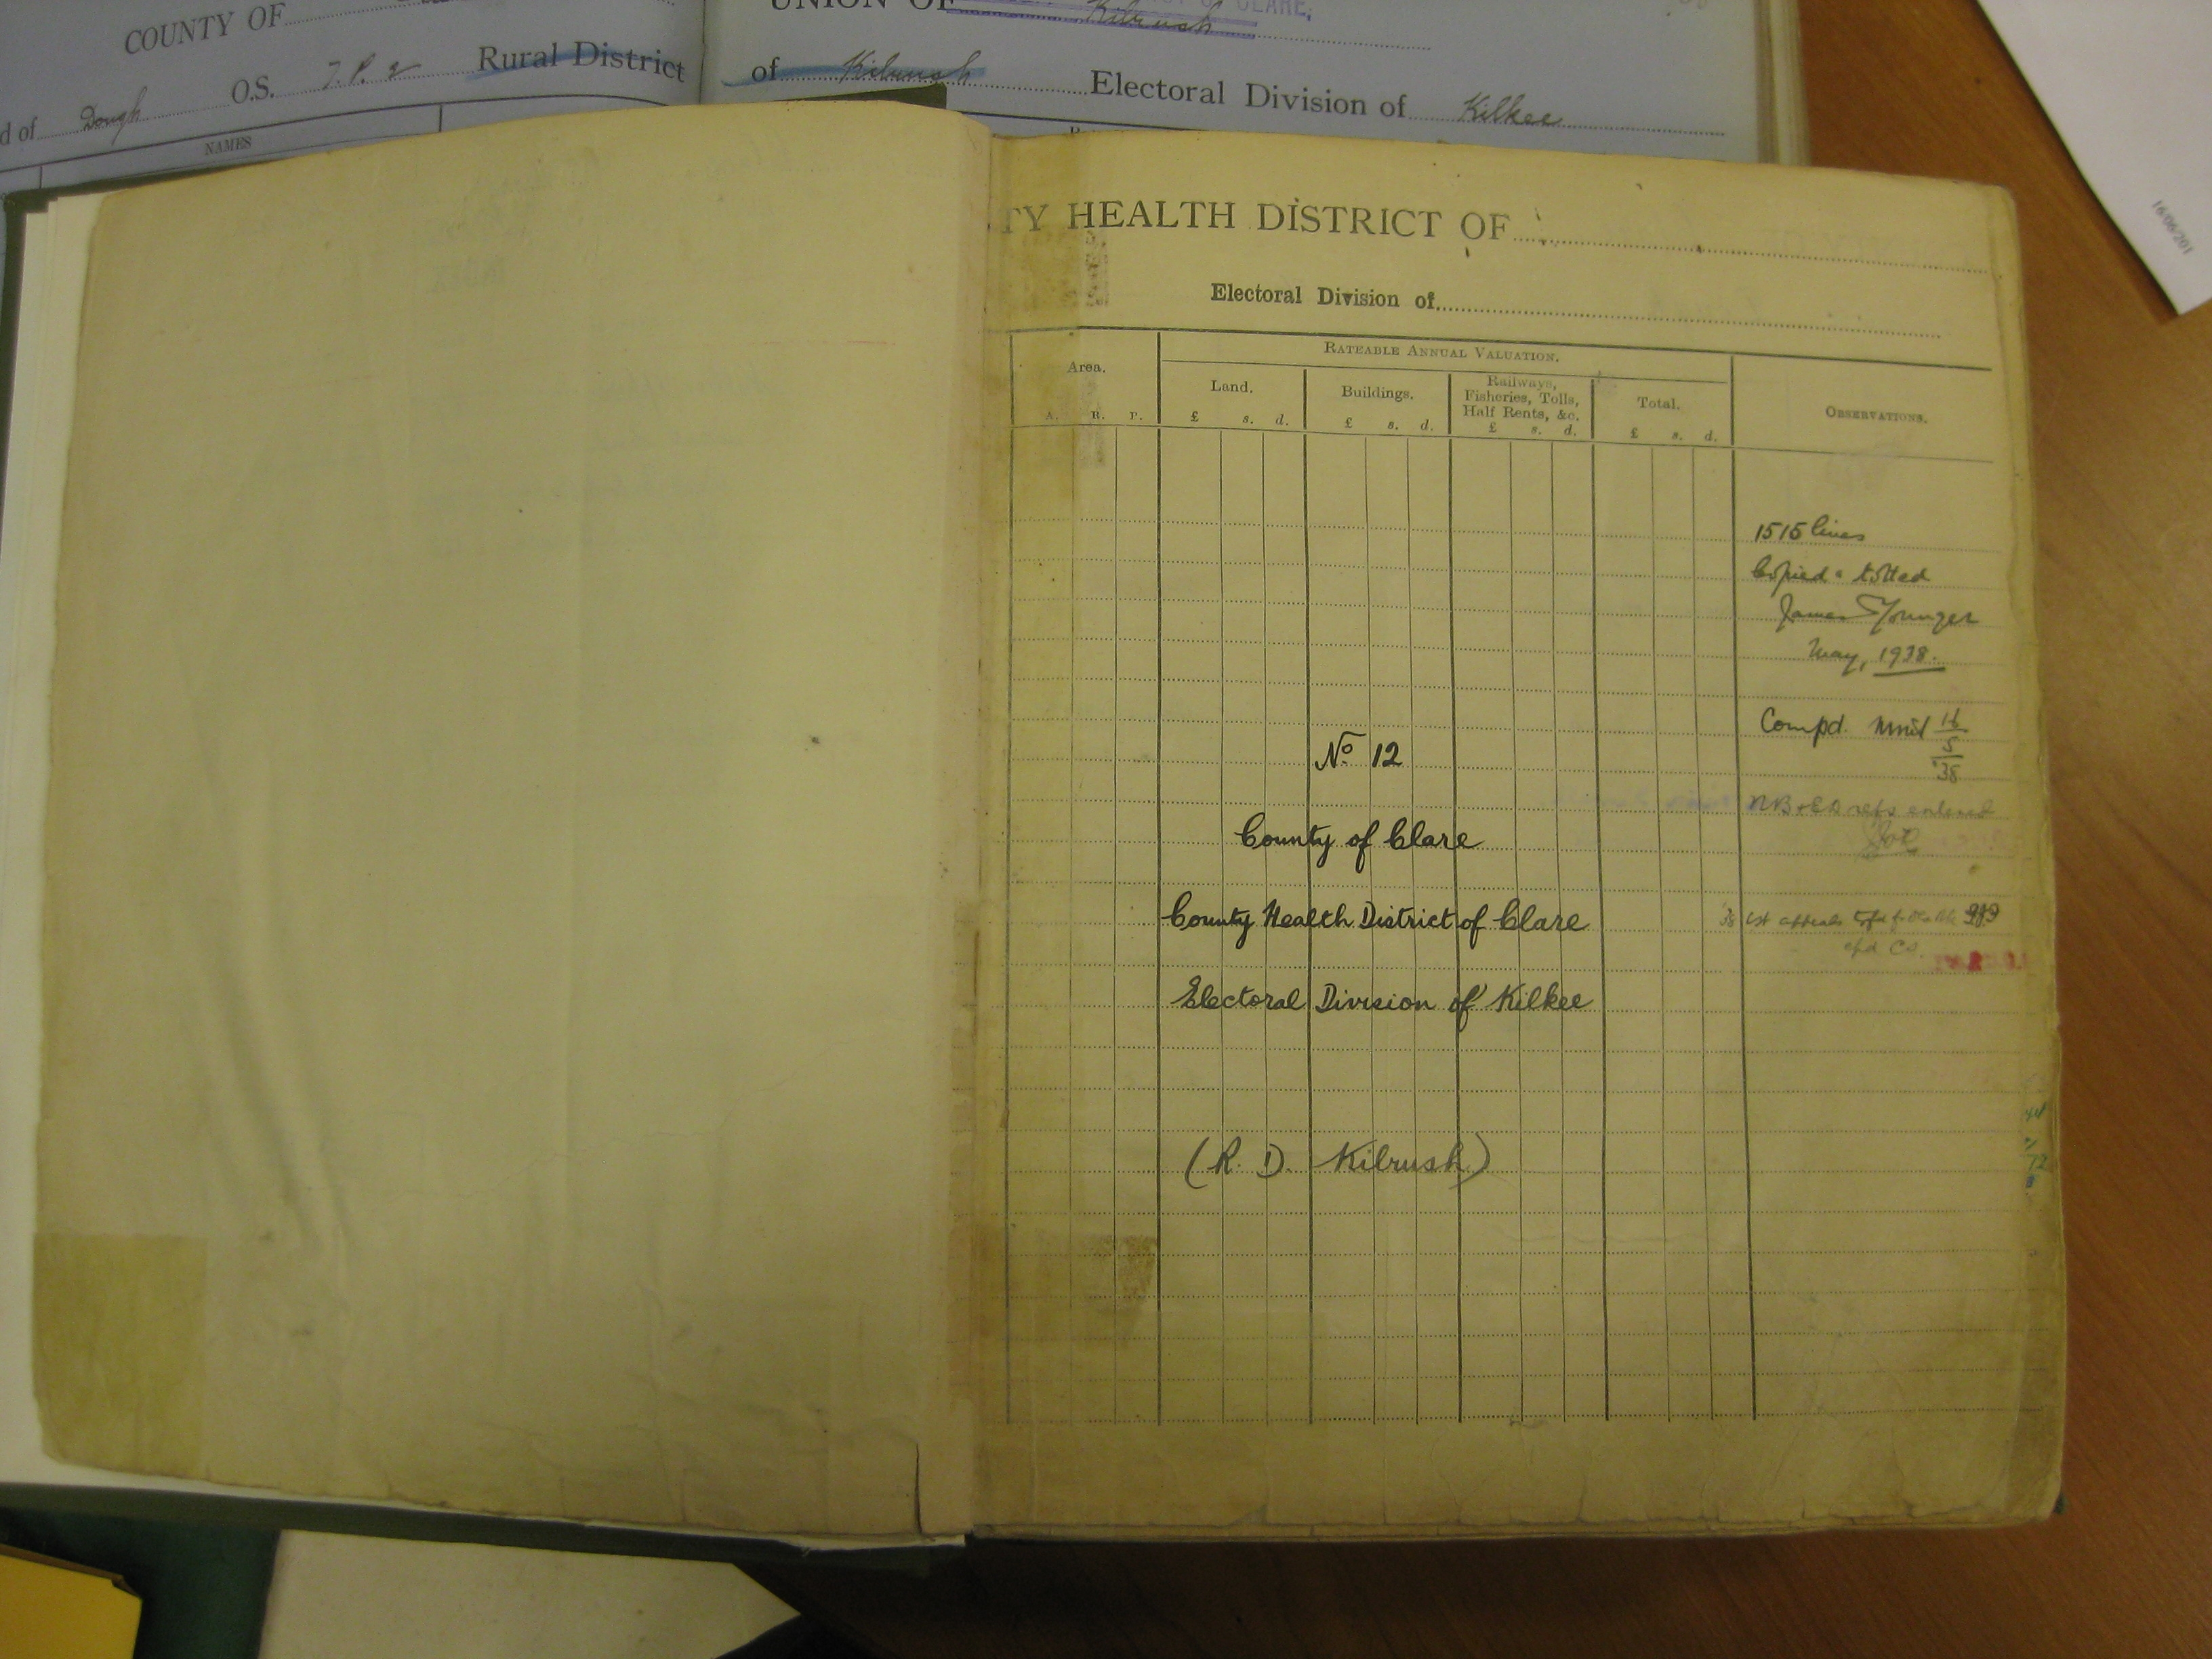 COUNTY OF
O.S. 7. P. 2 Rural District
d of Dough
NAMES
UNION OF Kilrush
CLARE,
of Kilrush Electoral Division of Kilkee
16/06/201
TY HEALTH DISTRICT OF
Electoral Division of
Area.
A. R. P.
RATEABLE ANNUAL VALUATION.
Land.
£ s. d.
Buildings.
£ s. d.
Railways,
Fisheries, Tolls,
Half Rents, &c.
£ s. d.
Total.
£ s. d.
OBSERVATIONS.
1515 lines
Copied & totted
James Younger
May, 1938.
Compd. 16
5
'38
No. 12
NB + ED refs entered
County of Clare
County Health District of Clare
1st appeals
Electoral Division of Kilkee
(R. D. Kilrush)